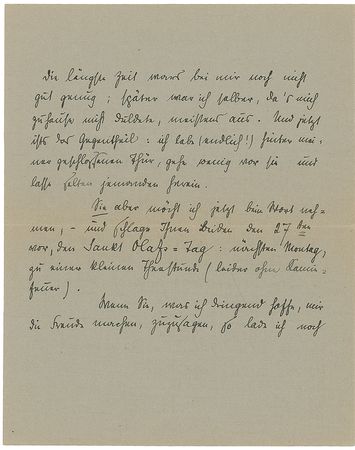 die längste Zeit wars bei mir noch nicht
gut genug; später war ich selber, da's mich
zuhause nicht duldete, meistens aus. Und jetzt
ists das Gegentheil: ich lebe (endlich!) hinter mei-
ner geschlossenen Thür, gehe wenig vor sie und
lasse selten jemanden herein.
Sie aber möcht ich jetzt beim Wort neh-
men, – und schlage Ihnen Beiden den 27ten
vor, den Sankt Olafs-Tag: nächsten Montag,
zu einer kleinen Theestunde (leider ohne Kamin-
feuer).
Wenn Sie, was ich dringend hoffe, mir
die Freude machen, zuzusagen, so lade ich noch